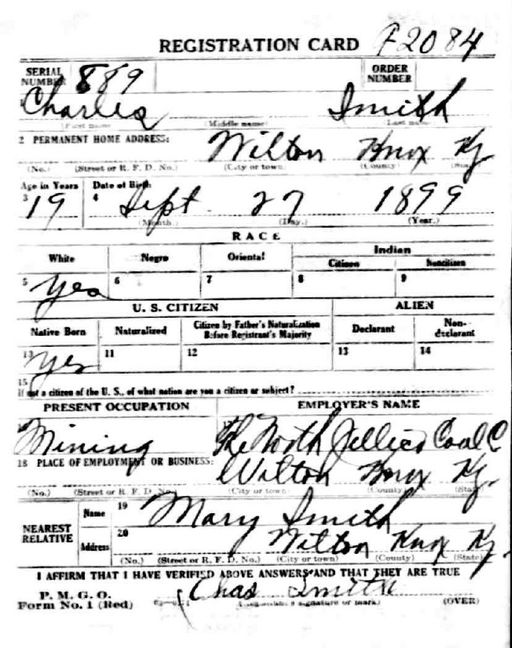 REGISTRATION CARD
SERIAL NUMBER 889 ORDER NUMBER A2084
Charles Smith
(First name) (Middle name) (Last name)
2 PERMANENT HOME ADDRESS: Wilton Knox Ky
(No.) (Street or R. F. D. No.) (City or town) (County) (State)
Age in Years Date of Birth
3 19 4 Sept. 27 1899
(Month.) (Day.) (Year.)
RACE
White Negro Oriental Indian
Citizen Noncitizen
5 Yes 6 7 8 9
U. S. CITIZEN ALIEN
Native Born Naturalized Citizen by Father's Naturalization Before Registrant's Majority Declarant Non-declarant
10 Yes 11 12 13 14
15
If not a citizen of the U. S., of what nation are you a citizen or subject?
PRESENT OCCUPATION EMPLOYER'S NAME
Mining The North Jellico Coal C
18 PLACE OF EMPLOYMENT OR BUSINESS: Wilton Knox Ky.
(No.) (Street or R. F. D. No.) (City or town) (County) (State)
NEAREST RELATIVE Name 19 Mary Smith
Address 20 Wilton Knox Ky.
(No.) (Street or R. F. D. No.) (City or town) (County) (State)
I AFFIRM THAT I HAVE VERIFIED ABOVE ANSWERS AND THAT THEY ARE TRUE
P. M. G. O.
Form No. 1 (Red) Chas Smith
(Registrant's signature or mark) (OVER)